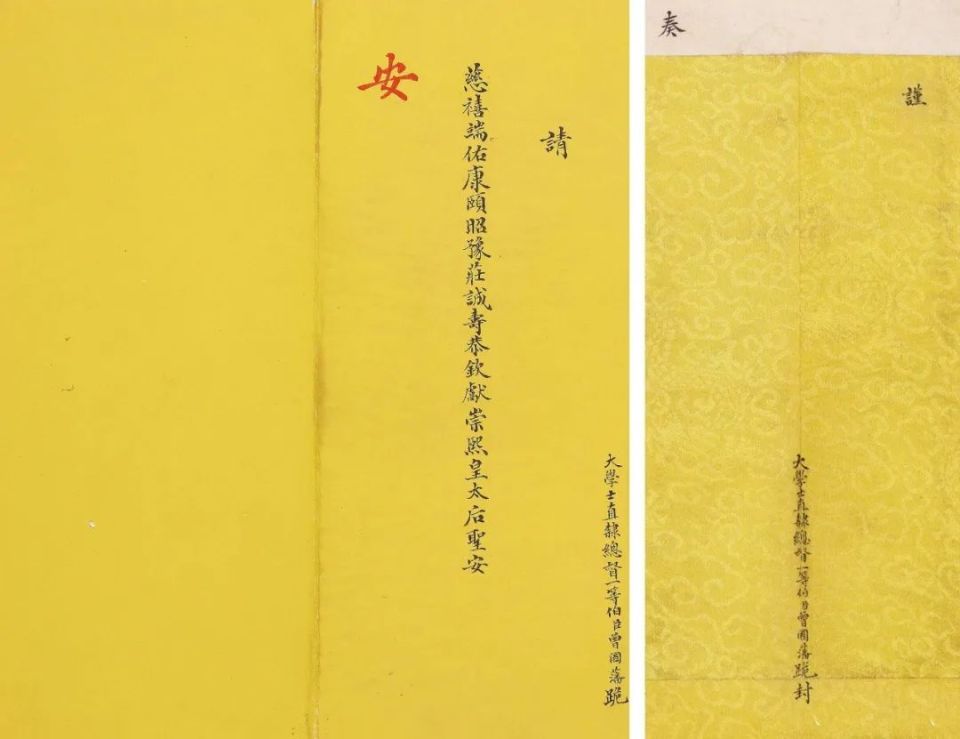 謹
大學士直隸總督一等伯臣曾國藩跪封
奏
大學士直隸總督一等伯臣曾國藩跪
請
慈禧端佑康頤昭豫莊誠壽恭欽獻崇熙皇太后聖安
安